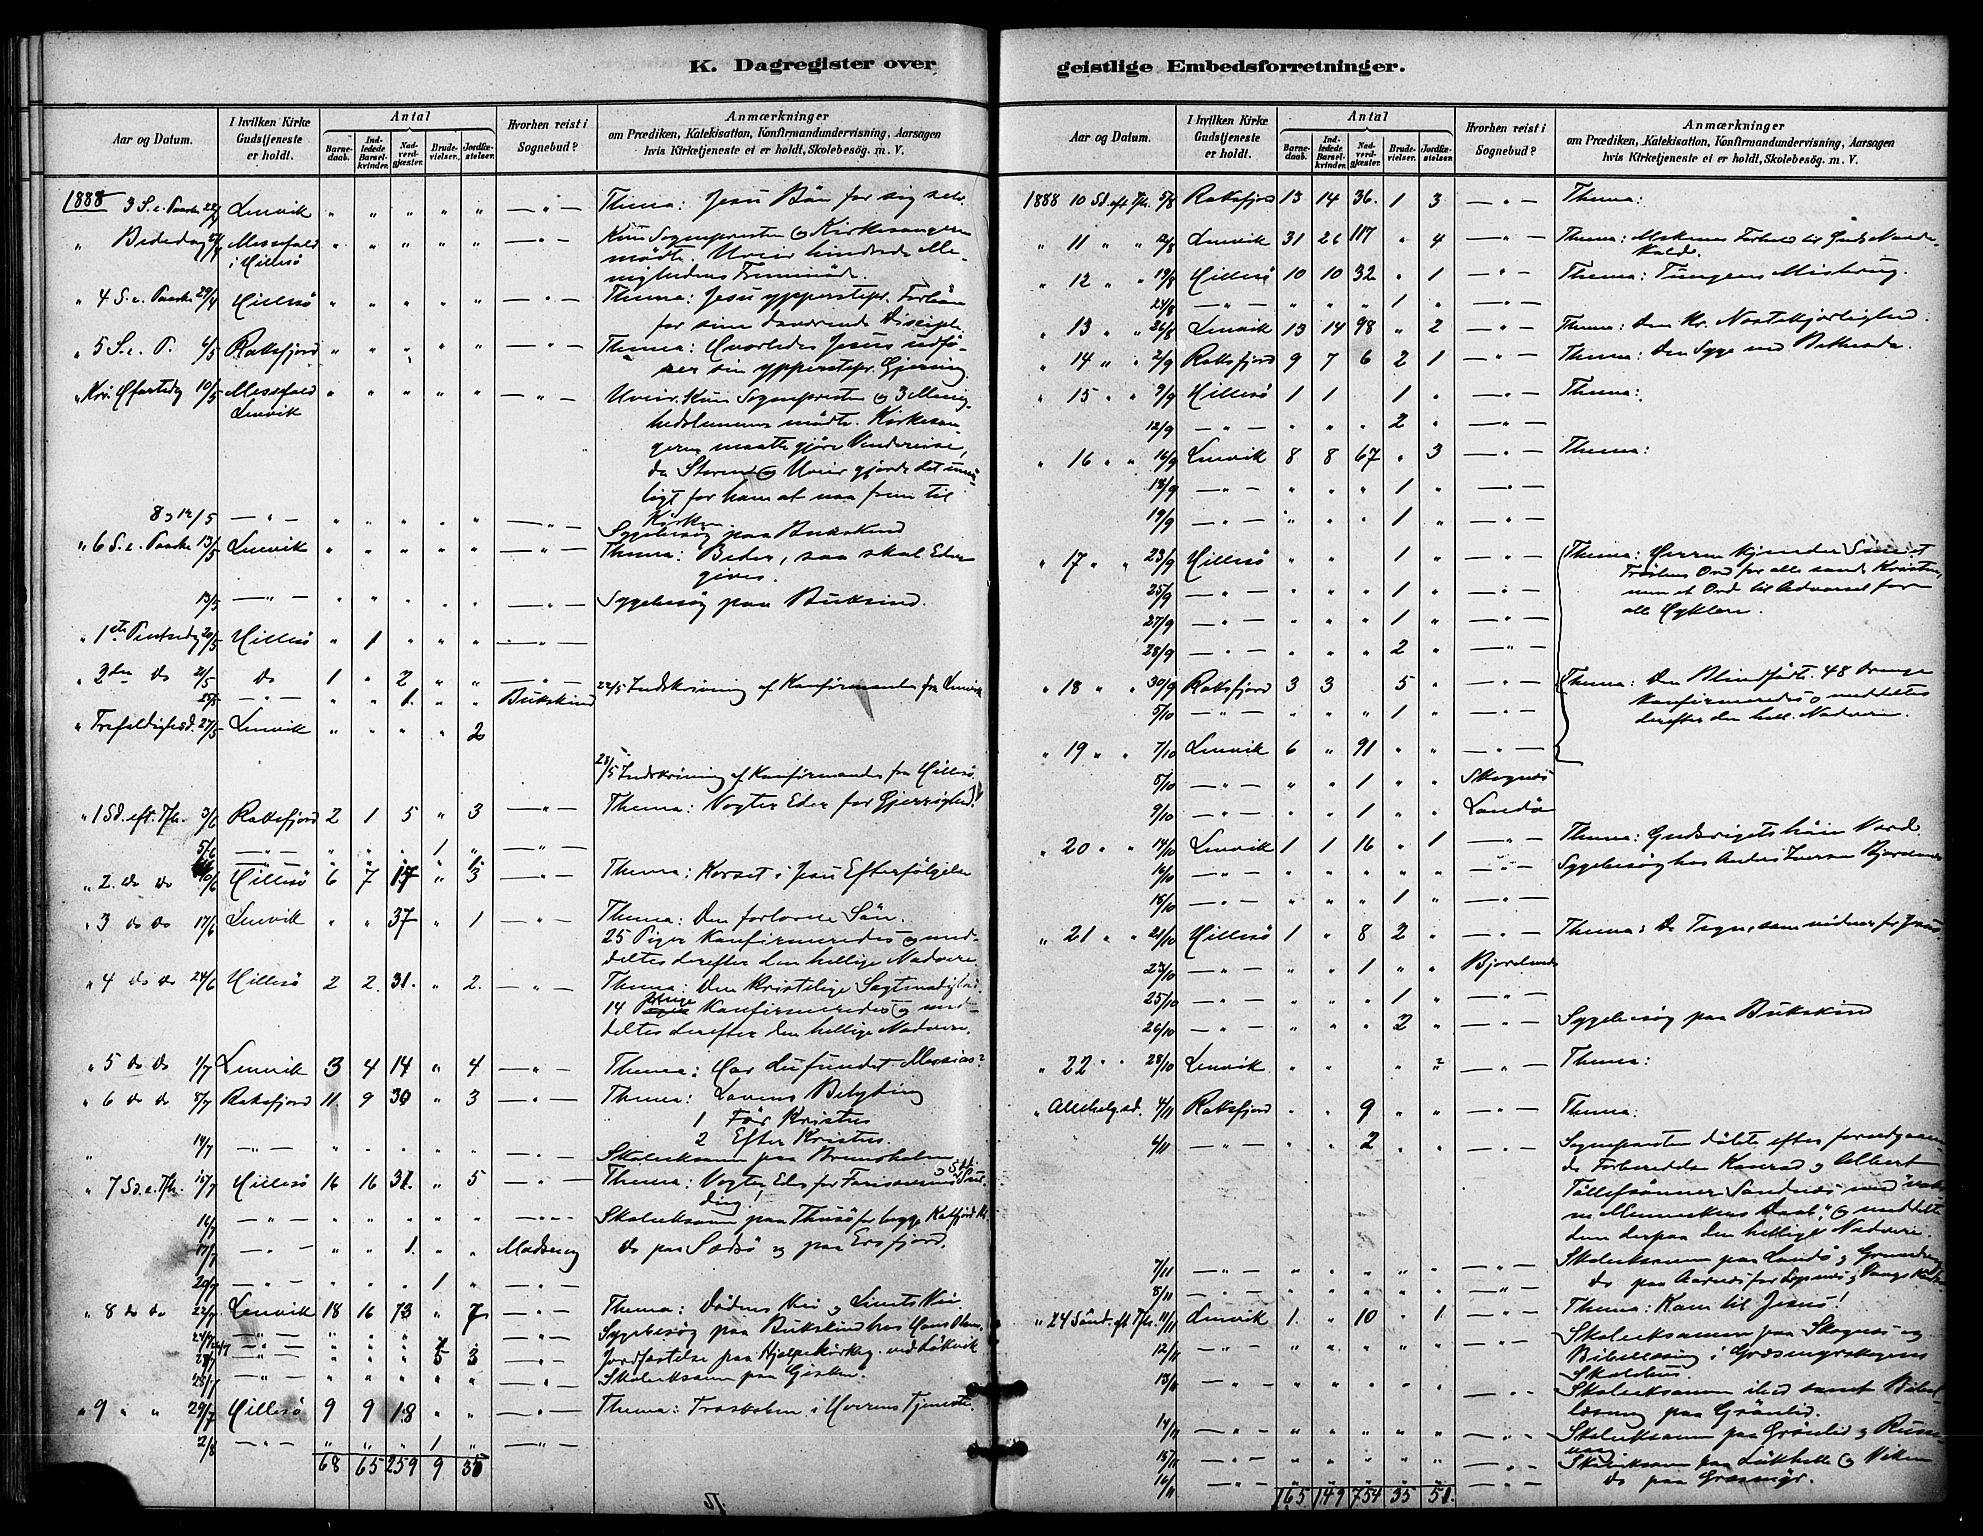 K. Dagregister over geistlige Embedsforretninger.
Aar og Datum.
I hvilken Kirke Gudstjeneste er holdt.
Antal
Barne-daab.
Ind-ledede Barsel-kvinder.
Nad-verd-gjæster.
Brude-vielser.
Jordfæ-stelser.
Hvorhen reist i Sognebud?
Anmærkninger
om Prædiken, Katekisation, Konfirmandundervisning, Aarsagen
hvis Kirketjeneste ei er holdt, Skolebesøg. m. V.
1888 3 S. e. Paaske 22/4 Lenvik " " " " " — " — Thema: Jesu Bøn for sig selv.
" Bededag 27/4 Messefald " " " " " — " — Kun Sognepresten og Kirkesangeren
i Hillesö mödte. Uveir hindrede Me-
nighedens Fremmöde.
" 4 S. e. Paaske 29/4 Hillesö " " " " " — " — Thema: Jesu ypperstepr. Forbön
for sine daværende Disciple.
" 5 S. e. P. 6/5 Roksfjord " " " " " — " — Thema: Hvorledes Jesus udfö-
rer sin ypperstepr. Gjerning
" Kr. Hfartsdg 10/5 Messefald " " " " " — " — Uveir. Kun Sognepresten og 3 Menig-
Lenvik hedslemmer mödte. Kirkesan-
geren maatte gjöre Vendereise,
da Storm og Uveir gjorde det umu-
ligt for ham at naa frem til
Kirken
8 og 12/5 — " — " " " " " — " — Sygebesög paa Bukskind
" 6 S. e. Paaske 13/5 Lenvik " " " " " — " — Thema: Beder, saa skal Eder
gives.
13/5 — " — " " " " " — " — Sygebesög paa Bukskind.
" 1ste Pintsedg 20/5 Hillesö " 1 " " " — " —
" 2den do 21/5 do 1 " 2 " " — " — 22/5 Indskrivning af Konfirmander fra Lenvik
25/5 — " — " " 1. " " Bukskind
" Trefoldighedsd. 27/5 Lenvik " " " " 2
28/5 Indskrivning af Konfirmander fra Hillesö
" 1 Sd. eft. Tfh. 3/6 Roksfjord 2 1 5 " 3 — " — Thema: Vogter Eder for Gjerrighed
5/6 — " — " " " 1 " — " —
" 2. do do 10/6 Hillesö 6 7 17 " 3 — " — Thema: Korset i Jesu Efterfölgelse
" 3 do do 17/6 Lenvik " " 37 " 1 — " — Thema: Den forlorne Sön.
25 Piger konfirmeredes og med-
deltes derefter den hellige Nadvere.
" 4 do do 24/6 Hillesö 2 2. 31. " 2. — " — Thema: Den kristelige Sagtmodighed.
14 Piger Konfirmeredes og med-
deltes derefter den hellige Nadvere.
" 5 do do 1/7 Lenvik 3 4 14 " 4 — " — Thema: Har du fundet Messias?
" 6 do do 8/7 Roksfjord 11. 9 30 " 3 — " — Thema: Lovens Betydning
1 För Kristus
2 Efter Kristus.
" 14/7 — " — " " " " " — " — Skoleeksamen paa Brensholmen
" 7 Sd. e. Tfh. 15/7 Hillesö 16 16 31. " 5 — " — Thema: Vogter Eder for Farisæernes
16/7 — " — " " " " " — " — Skoleeksamen paa
17/7 — " — " " 1. " " do paa og paa Ersfjord.
20/7 — " — " " " 1 " — " —
" 8 do do 22/7 Lenvik 18 16 73 " 7 — " — Thema: Dödens Vei og Livets Vei.
24/7 — " — " " " Sygebesög paa Bukskind hos Hans
27/7 — " — " " " 5 3 — " — Jordfæstelse paa Hjelpekirkeg. ved
28/7 — " — " " " " " — " — Skoleeksamen paa
" 9 " " 29/7 Hillesö 9 9 18 " " — " — Thema: Troskaben i Herrens Tjeneste.
2/8 — " — " " " 1 " — " —
68 65 259 9 35
Aar og Datum.
I hvilken Kirke Gudstjeneste er holdt.
Antal
Barne-daab.
Ind-ledede Barsel-kvinder.
Nad-verd-gjæster.
Brude-vielser.
Jordfæ-stelser
Hvorhen reist i Sognebud?
Anmærkninger
om Prædiken, Katekisation, Konfirmandundervisning, Aarsagen
hvis Kirketjeneste ei er holdt, Skolebesøg. m. V.
1888 10 Sd. eft Tfh. 5/8 Roksfjord 13 14 36. 1 3 — " — Thema:
" 11 " " 12/8 Lenvik 31 26 117 " 4 — " — Thema: Forhold til Guds Naade-
Kald.
" 12 " " 19/8 Hillesö 10 10 32 " 1 — " — Thema: Tungens Misbrug.
21/8 — " — " " " 1 " — " —
" 13 " " 26/8 Lenvik 13 14 98 " 2 — " — Thema: Den kr. Næstekjærlighed.
" 14 " " 2/9 Roksfjord 9 7 6 2 1 — " — Thema: Den Syge ved Bethesda
" 15 " " 9/9 Hillesö 1 1 1 " — " — Thema:
12/9 — " — " " " 2 " — " —
" 16 " " 16/9 Lenvik 8 8 67 " 3 — " — Thema:
18/9 — " — " " " 1 " — " —
19/9 — " — " " " 1 " — " —
" 17 " " 23/9 Hillesö " " " 1 " — " — Thema: Herren kjender Sine et
Tröstens Ord for alle sande Kristne,
men et Ord til Advarsel for
alle Hyklere.
25/9 — " — " " " 1 " — " —
27/9 — " — " " " 1 " — " —
28/9 — " — " " " 2 " — " —
" 18 " " 30/9 Roksfjord 3 3 5 " — " — Thema: Den Blindfödte. 48 Drenge
konfirmeredes og meddeltes
derefter den hell. Nadvere.
5/10 — " — " " " 1 " — " —
" 19 " " 7/10 Lenvik 6 " 91 " " — " —
5/10 — " — " " 1 " " Skognes
9/10 — " — " " 1 " " Landö
" 20 " " 14/10 Lenvik 1 1 16 " 1 — " — Thema: Gudsrigets höie Værd
16/10 — " — " " " " " — " — Sygebesög hos Anders Iversen
18/10 — " — " " " 1 " — " —
" 21 " " 21/10 Hillesö 1 " 8 2 " — " — Thema: De Tegn, som vidner for Jesus
23/10 — " — " " 1 " " Bjorelvnes
25/10 — " — " " " 1 " — " —
26/10 — " — " " " 2 " — " — Sygebesög paa Bukskind
" 22 " " 28/10 Lenvik " " " " — " — Thema:
" Allehelg.sd. 4/11 Roksfjord " " 9 " " — " — Thema:
6/11 — " — " " 2 " " — " — Sognepresten döbte efter foregaaen-
de Forberedelse Konrad og Albert
Tollefsönner Sandnes med
Menneskers Daab", og meddelte
dem derpaa den hellige Nadvere.
7/11 — " — " " " " " — " — Skoleeksamen paa Landö og
8/11 — " — " " " " " — " — do paa Aarnes for
" 24 Sönd. eft Tfh. 11/11 Lenvik 1. " 10 " 1 — " — Thema: Kom til Jesus!
12/11 — " — " " " " " — " — Skoleeksamen paa Skognes og
Bibellæsning i Græsmyrskogens
Skolehus.
13/11 — " — " " " " " — " — Skoleeksamen ibid samt Bibel-
læsning paa Grönlid.
14/11 — " — " " " " " — " — Skoleeksamen paa Grönlid og
15/11 — " — " " " " " — " — Skoleeksamen paa og Viken
16/11 — " — " " " " " — " — do paa Græsmyr.
165 149 754 35 51.